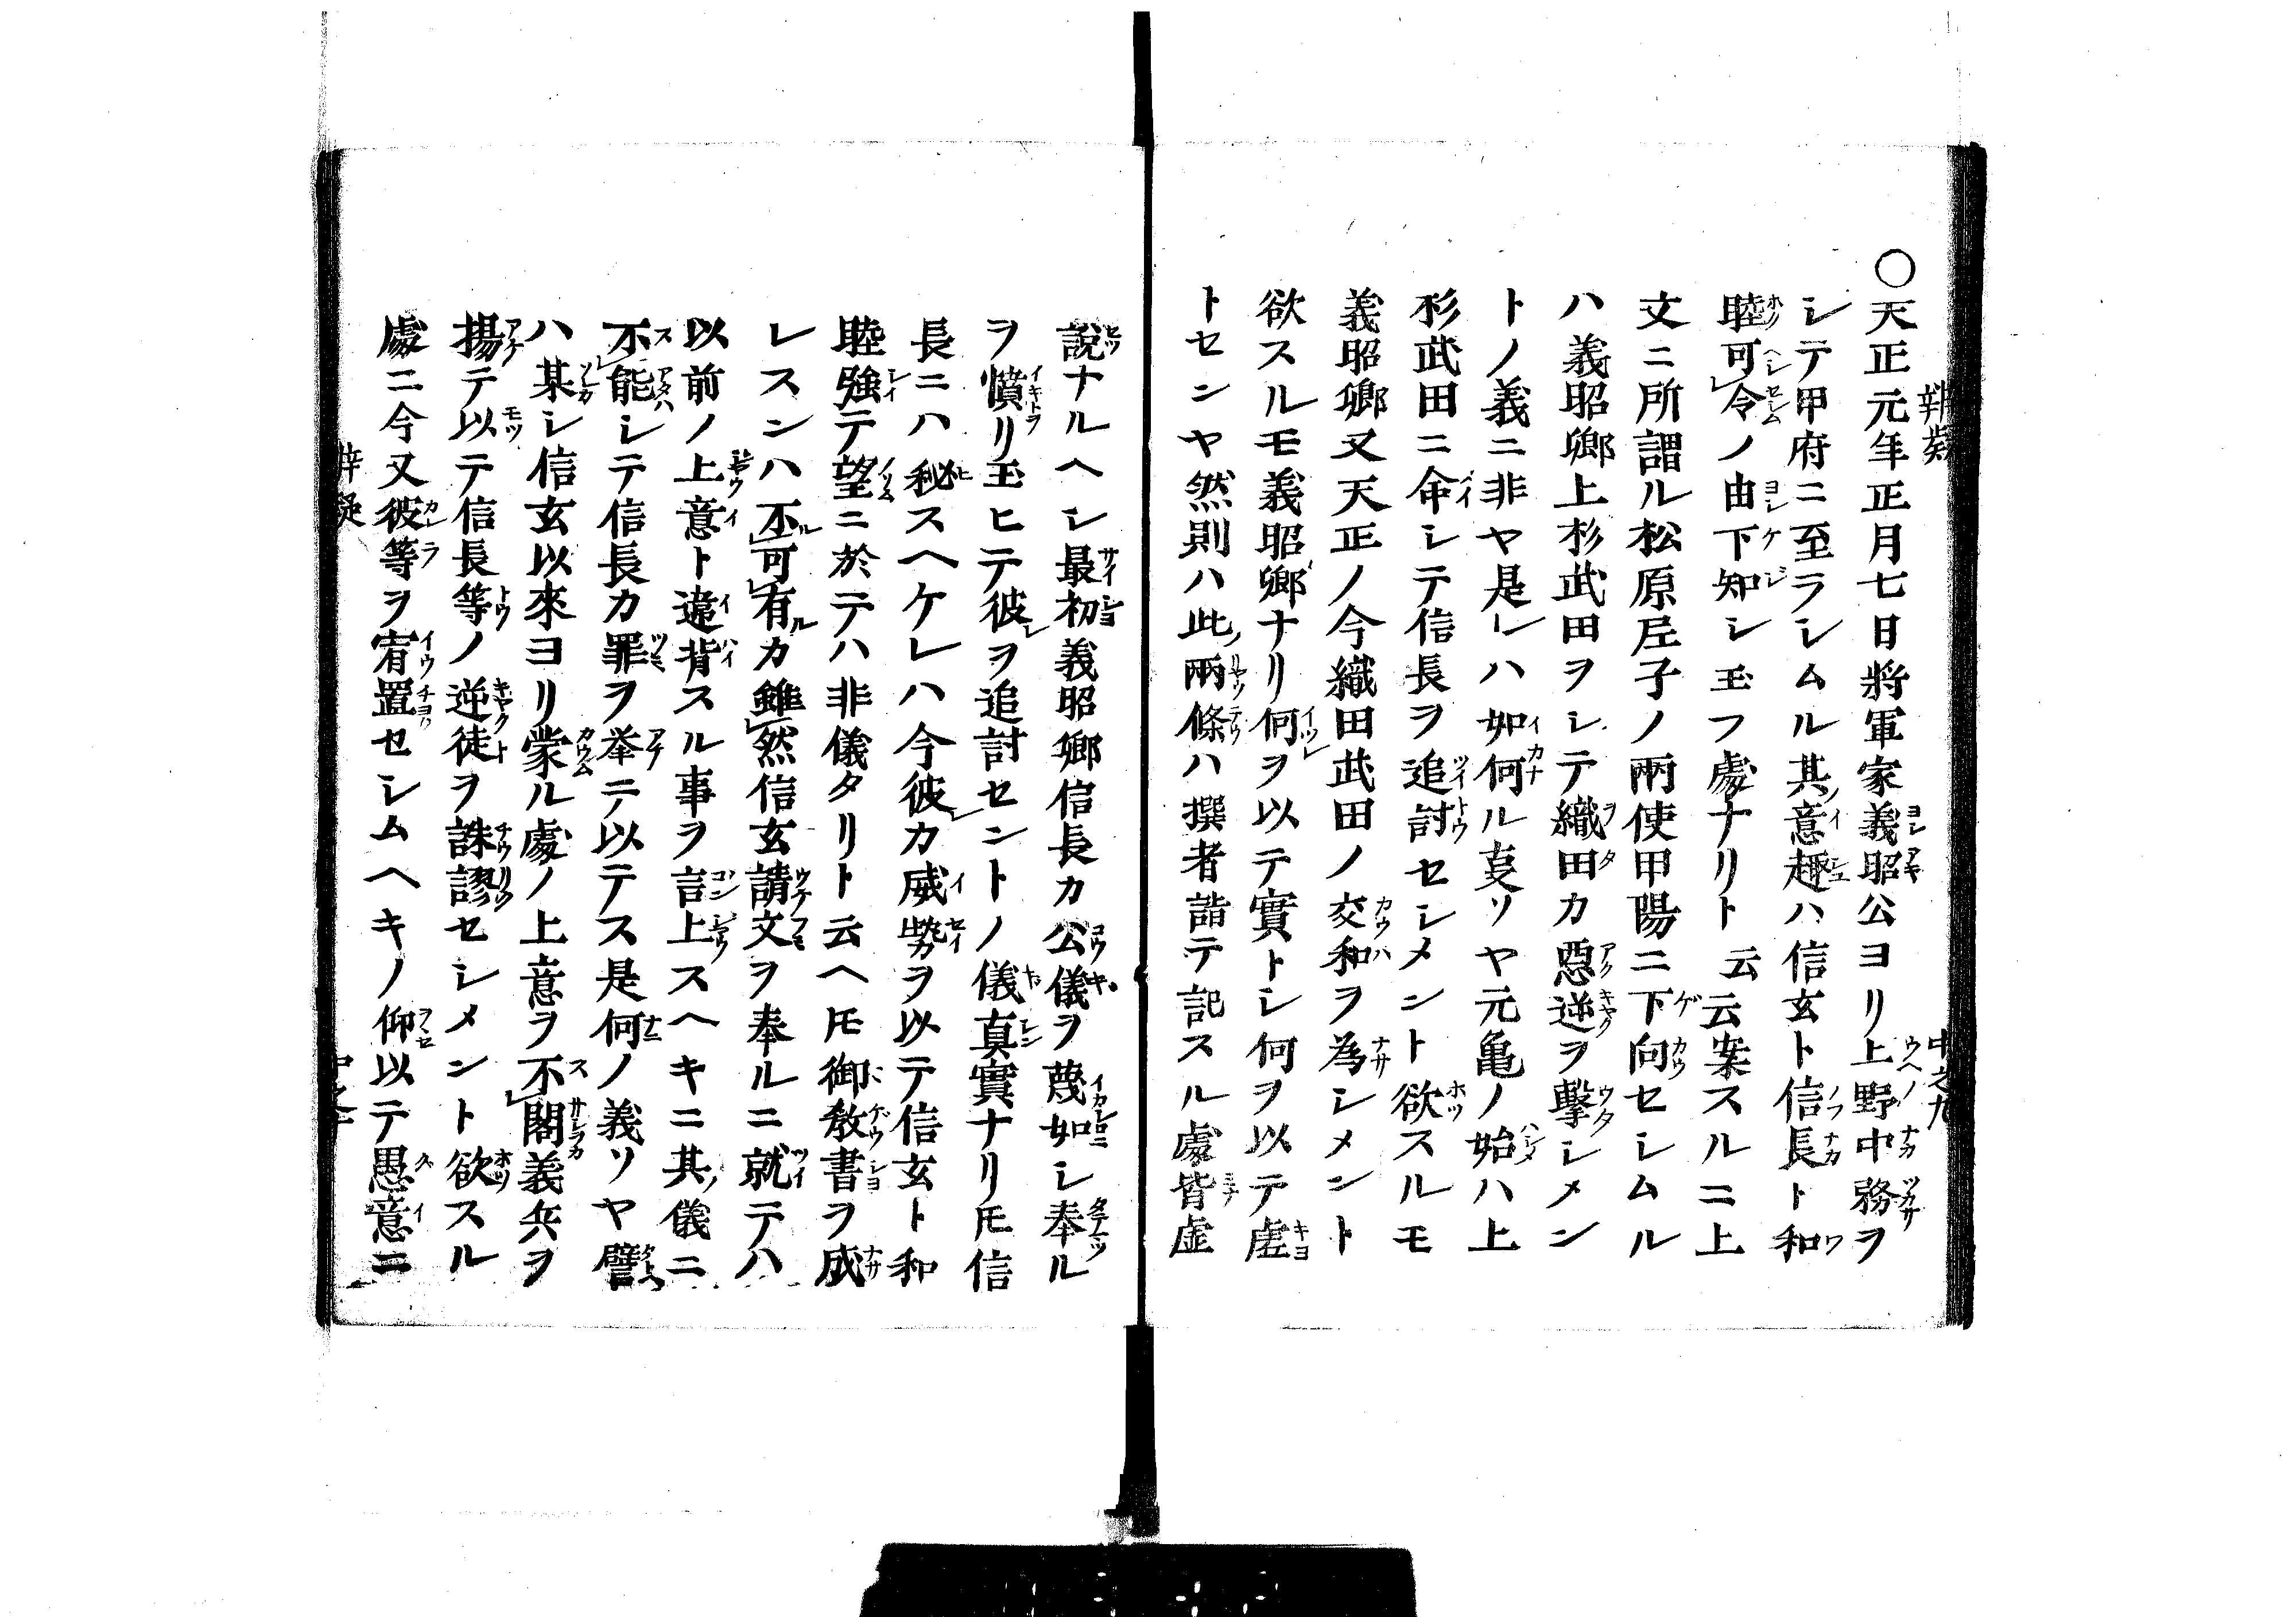 辨疑 中之九
○天正元年正月七日將軍家義昭公ヨリ上野中務ヲ
シテ甲府ニ至ラシムル其意趣ハ信玄ト信長ト和
睦可令ノ由下知シ玉フ處ナリト云云案スルニ上
文ニ所謂ル松原庄子ノ兩使甲陽ニ下向セシムル
ハ義昭卿上杉武田ヲシテ織田カ惡逆ヲ擊シメン
トノ義ニ非ヤ是レハ如何ル叓ソヤ元亀ノ始ハ上
杉武田ニ命シテ信長ヲ追討セシメント欲スルモ
義昭卿又天正ノ今織田武田ノ交和ヲ為シメント
欲スルモ義昭卿ナリ何ヲ以テ實トシ何ヲ以テ虚
トセンヤ然則ハ此兩條ハ撰者誥テ記スル處皆虚
說ナルヘシ最初義昭卿信長カ公儀ヲ蔑如シ奉ル
ヲ憤リ玉ヒテ彼ヲ追討セントノ儀真實ナリ𪜈信
長ニハ秘スヘケレハ今彼カ威勢ヲ以テ信玄ト和
睦強テ望ニ於テハ非儀タリト云ヘ𪜈御敎書ヲ成
レスンハ不可有カ雖然信玄請文ヲ奉ルニ就テハ
以前ノ上意ト違背スル事ヲ言上スヘキニ其儀ニ
不能シテ信長カ罪ヲ举テ以テス是何ノ義ソヤ譬
ハ某シ信玄以來ヨリ蒙ル處ノ上意ヲ不閣義兵ヲ
揚テ以テ信長等ノ逆徒ヲ誅謬セシメント欲スル
處ニ今又彼等ヲ宥置セシムヘキノ仰以テ愚意ニ
辨疑